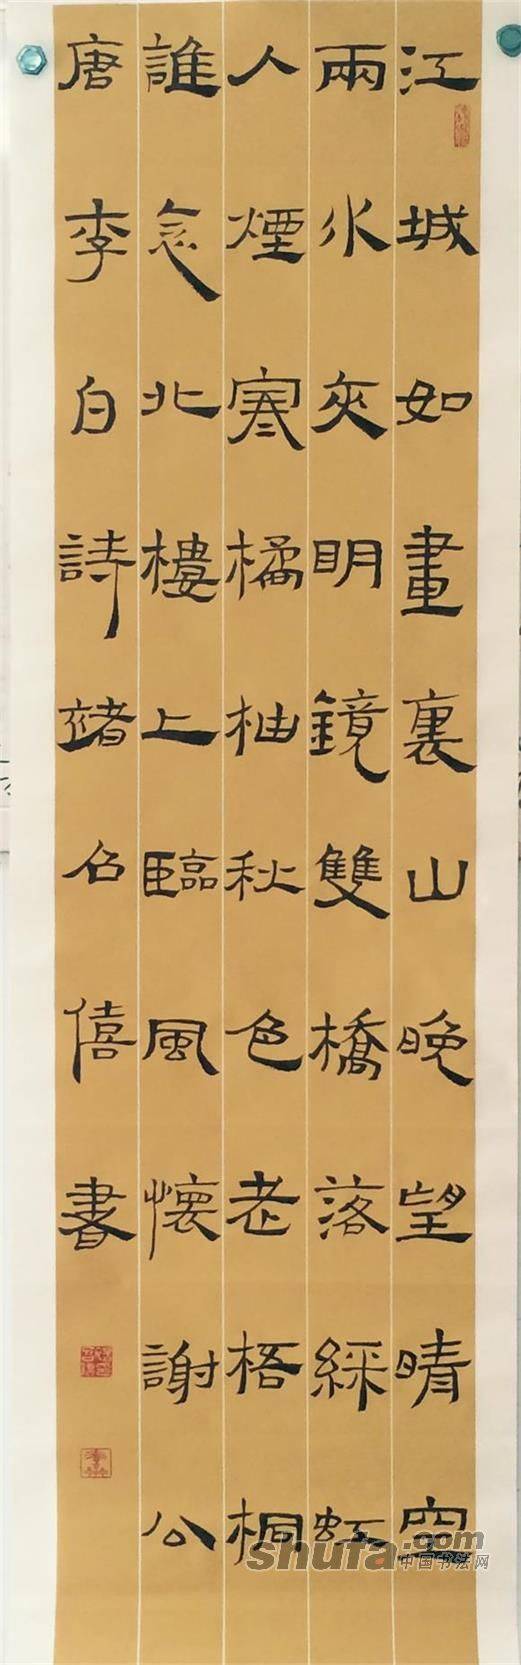 江城如畫裏山晚望晴空
兩水夾明鏡雙橋落綵虹
人煙寒橘柚秋色老梧桐
誰念北樓上臨風懷謝公
唐李白詩
名僖書
shufa.com
中国书法网